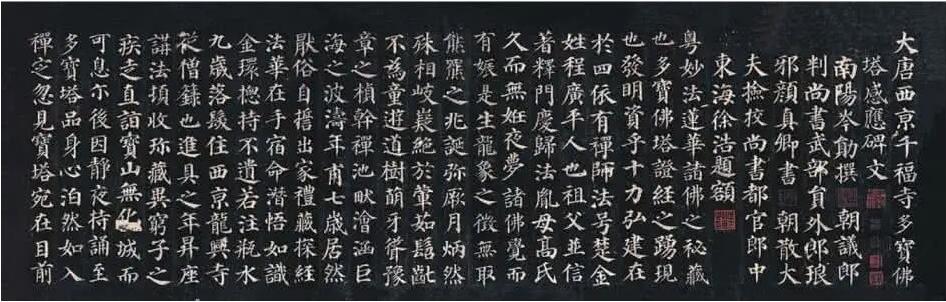 大唐西京千福寺多寶佛
塔感應碑文
南陽岑勛撰 朝議郎
判尚書武部員外郎琅
邪顏真卿書 朝散大
夫撿校尚書都官郎中
東海徐浩題額
粵妙法蓮華諸佛之秘藏
也多寶佛塔證經之踴現
也發明資乎十力弘建在
於四依有禪師法号楚金
姓程廣平人也祖父並信
著釋門慶歸法胤母高氏
久而無姙夜夢諸佛覺而
有娠是生龍象之徵無取
熊羆之兆誕弥厥月炳然
殊相岐嶷絕於葷茹髫齔
不為童遊道樹萌牙聳豫
章之楨幹禪池畎澮涵巨
海之波濤年甫七歲居然
猒俗自誓出家禮藏探經
法華在手宿命潛悟如識
金環揔持不遺若注瓶水
九歲落髮住西京龍興寺
從僧籙也進具之年昇座
講法頓收珎藏異窮子之
疾走直詣寶山無化城而
可息尒後因靜夜持誦至
多寶塔品身心泊然如入
禪定忽見寶塔宛在目前